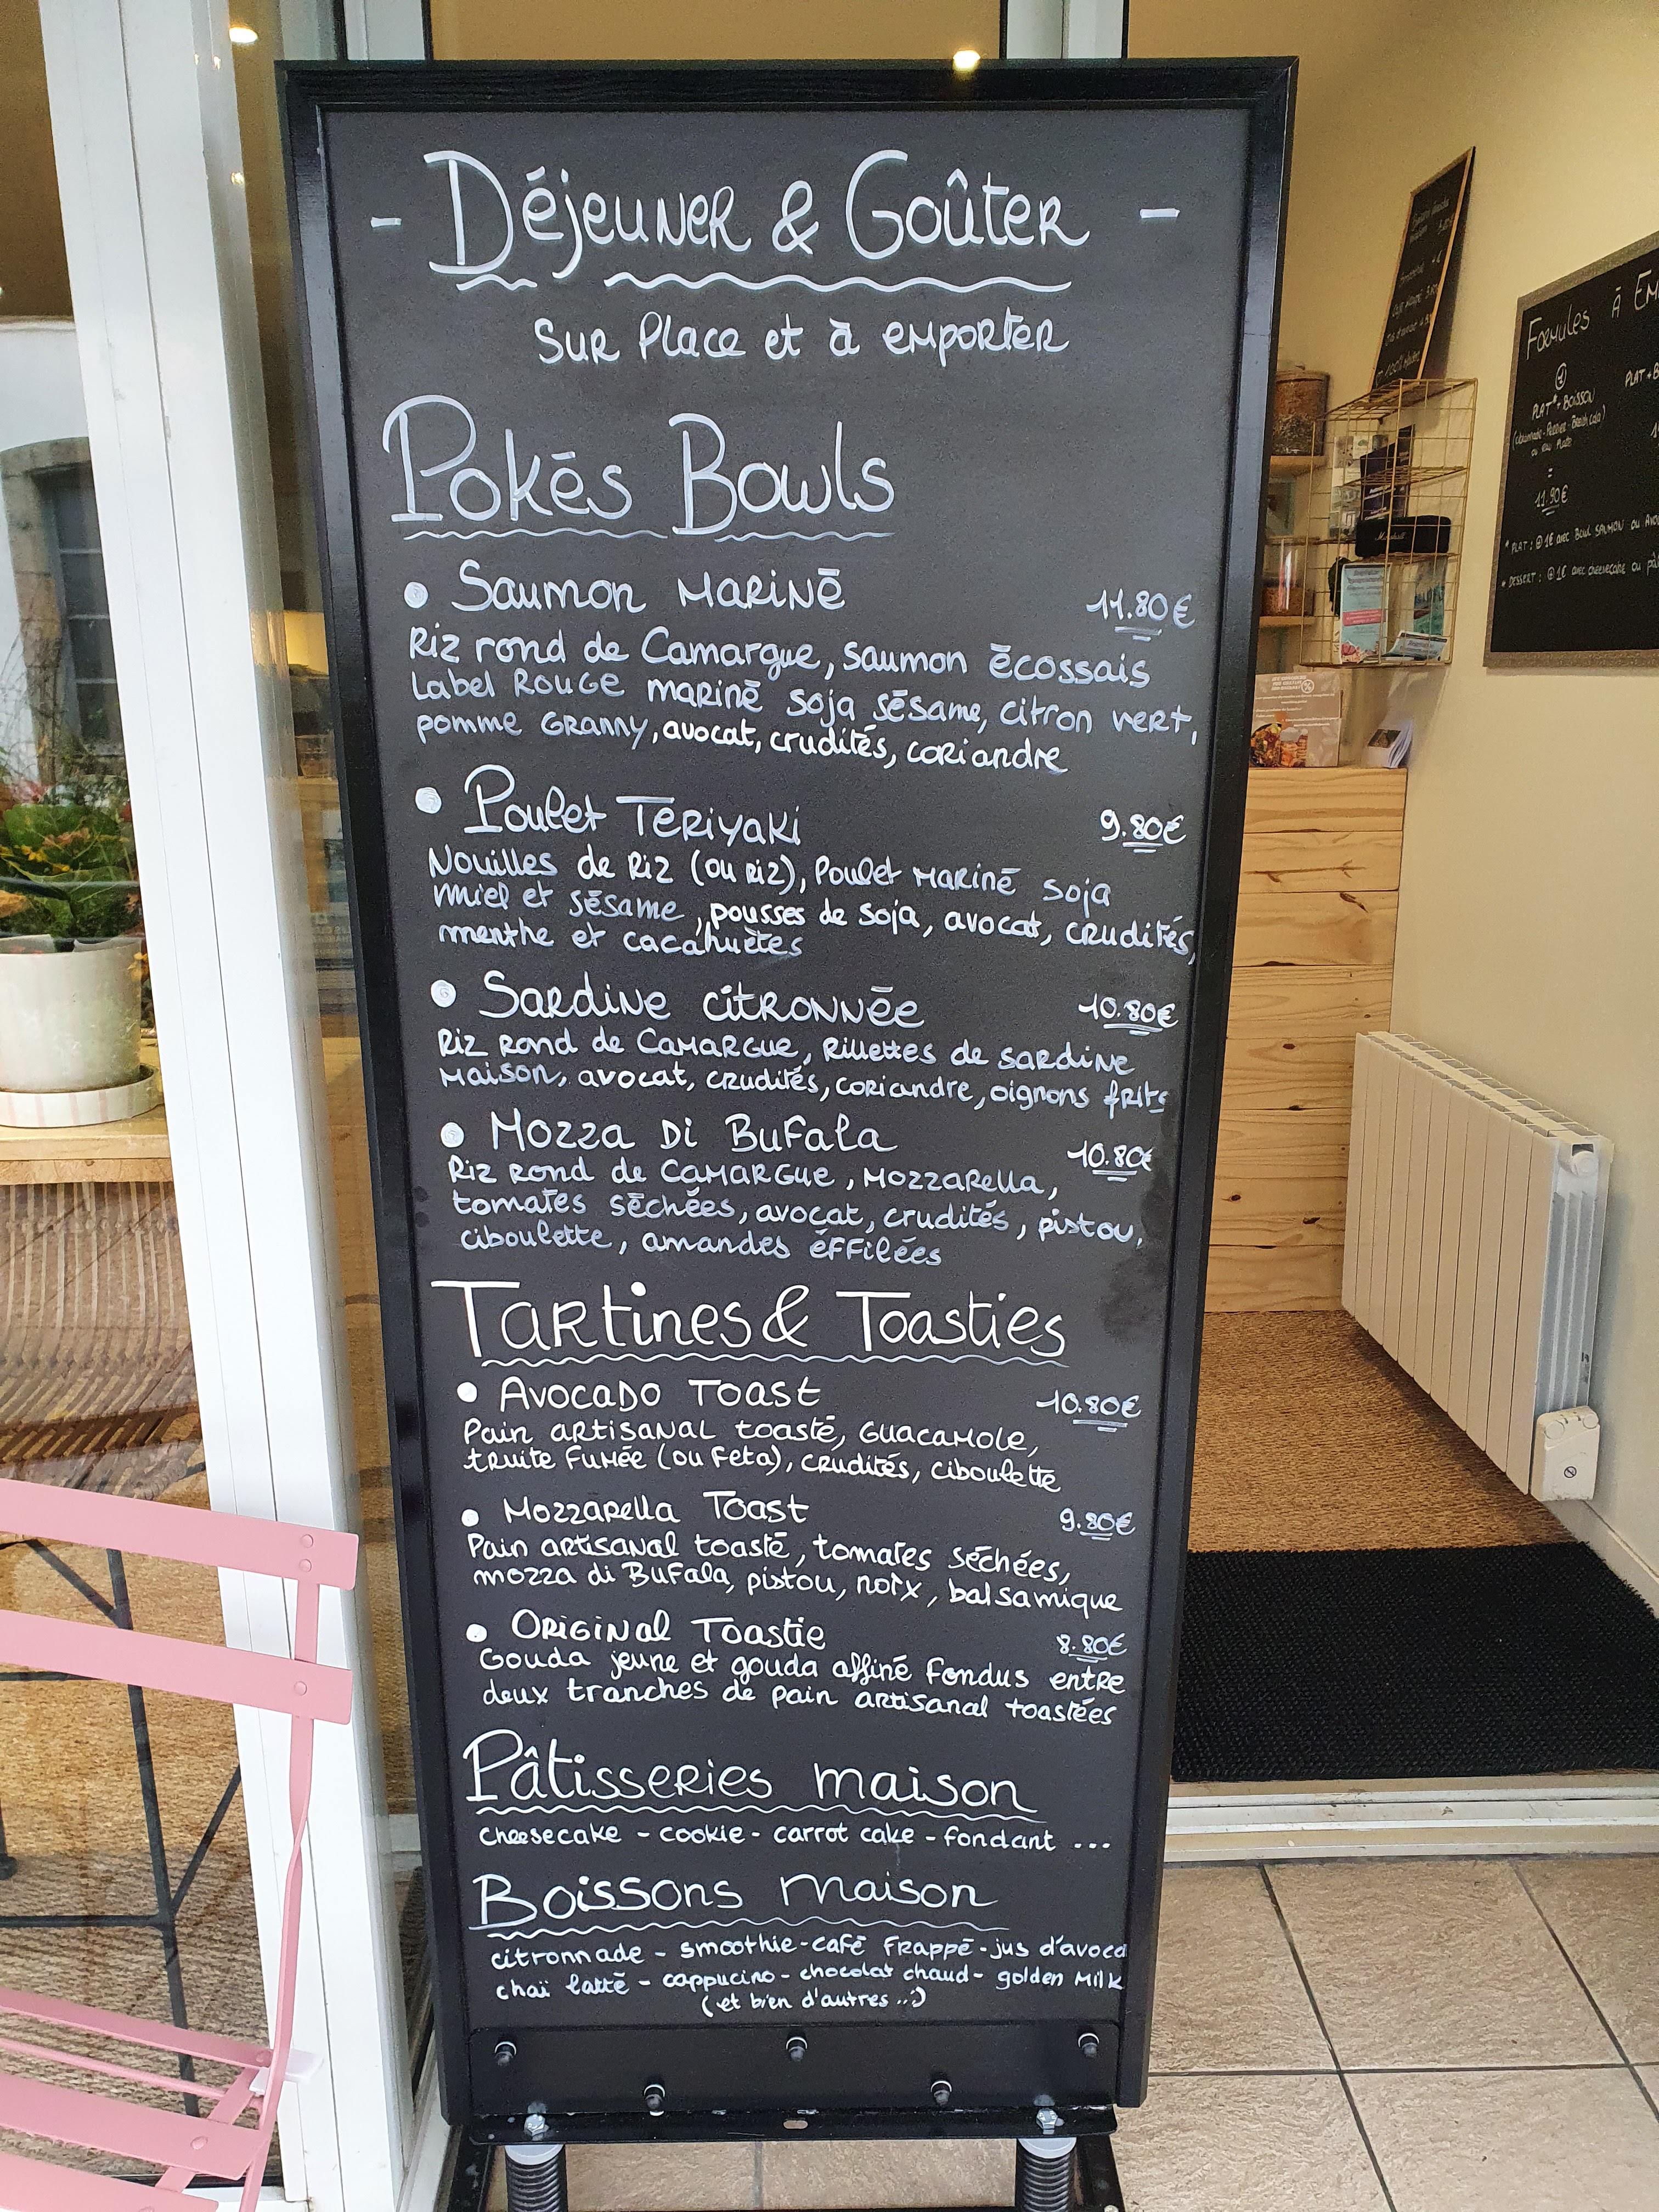 - Déjeuner & Goûter -
Sur Place et à emporter
Pokés Bowls
• Saumon Mariné 11.80€
Riz rond de Camargue, saumon écossais
Label Rouge mariné soja sésame, citron vert,
pomme Granny, avocat, crudités, coriandre
• Poulet Teriyaki 9.80€
Nouilles de Riz (ou riz), Poulet Mariné soja
miel et sésame, pousses de soja, avocat, crudités,
menthe et cacahuètes
• Sardine citronnée 10.80€
Riz rond de Camargue, Rillettes de sardine
Maison, avocat, crudités, coriandre, oignons frits
• Mozza Di Bufala 10.80€
Riz rond de Camargue, Mozzarella,
tomates séchées, avocat, crudités, pistou,
ciboulette, amandes éffilées
Tartines & Toasties
• Avocado Toast 10.80€
Pain artisanal toasté, Guacamole,
truite Fumée (ou Feta), crudités, ciboulette
• Mozzarella Toast 9.80€
Pain artisanal toasté, tomates séchées,
mozza di Bufala, pistou, noix, balsamique
• Original Toastie 8.80€
Gouda jeune et gouda affiné fondus entre
deux tranches de pain artisanal toastées
Pâtisseries maison
cheesecake - cookie - carrot cake - fondant ...
Boissons maison
citronnade - smoothie - café Frappé - jus d'avoca
chaï latté - cappucino - chocolat chaud - golden Milk
(et bien d'autres ..:)
Formules à Em
Plat* + Boisson
Plat + B
ou eau plate
=
11.90€
* Plat : ⊕ 1€ avec Bowl Saumon ou Avo
• Dessert : ⊕ 1€ avec cheesecake ou pâ
Marshall